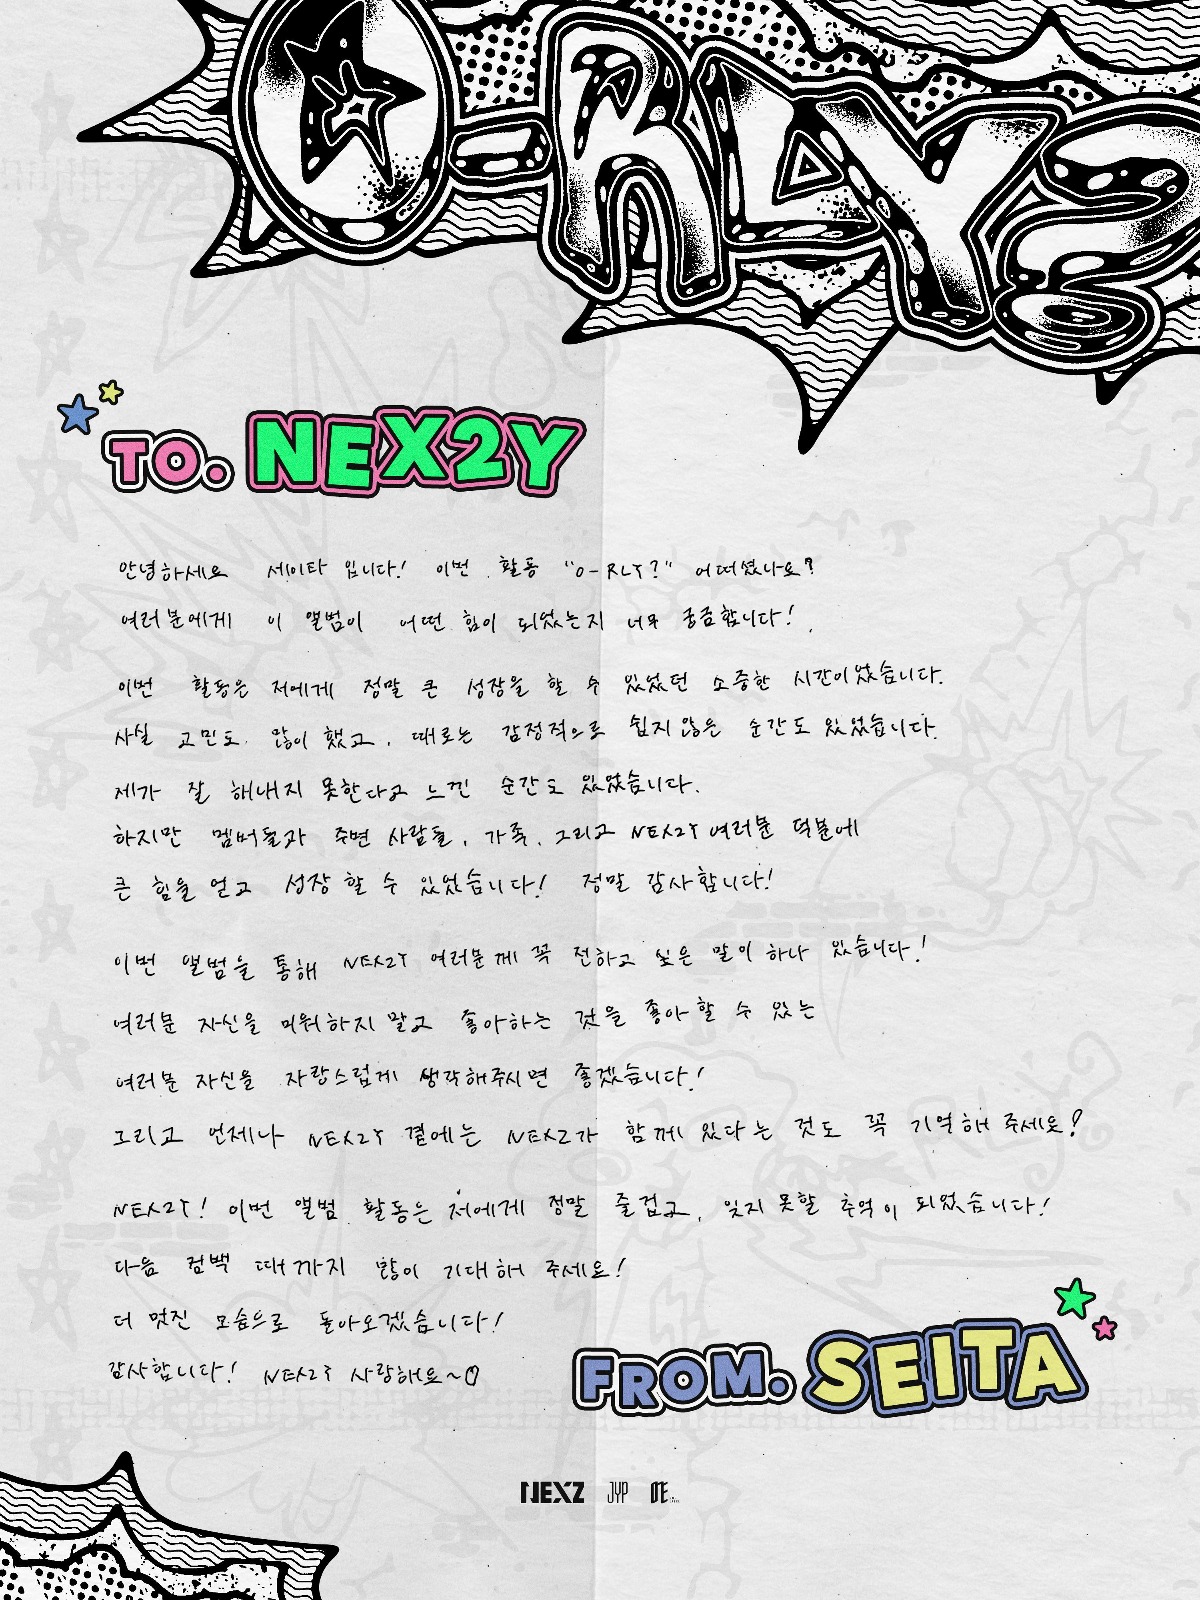 O-RLY?
TO. NEX2Y
안녕하세요 세이타 입니다! 이번 활동 "O-RLY?" 어떠셨나요?
여러분에게 이 앨범이 어떤 힘이 되었는지 너무 궁금합니다!
이번 활동은 저에게 정말 큰 성장을 할 수 있었던 소중한 시간이었습니다.
사실 고민도 많이 했고, 때로는 감정적으로 쉽지 않은 순간도 있었습니다.
제가 잘 해내지 못한다고 느낀 순간도 있었습니다.
하지만 멤버들과 주변 사람들, 가족, 그리고 NEX2Y 여러분 덕분에
큰 힘을 얻고 성장 할 수 있었습니다! 정말 감사합니다!
이번 앨범을 통해 NEX2Y 여러분께 꼭 전하고 싶은 말이 하나 있습니다!
여러분 자신을 미워하지 말고 좋아하는 것을 좋아할 수 있는
여러분 자신을 자랑스럽게 생각해주시면 좋겠습니다!
그리고 언제나 NEX2Y 곁에는 NEXZ가 함께 있다는 것도 꼭 기억해 주세요?
NEX2Y! 이번 앨범 활동은 저에게 정말 즐겁고, 잊지 못할 추억이 되었습니다!
다음 컴백 때까지 많이 기대해 주세요!
더 멋진 모습으로 돌아오겠습니다!
감사합니다! NEX2Y 사랑해요~♡
FROM. SEITA
NEXZ JYP